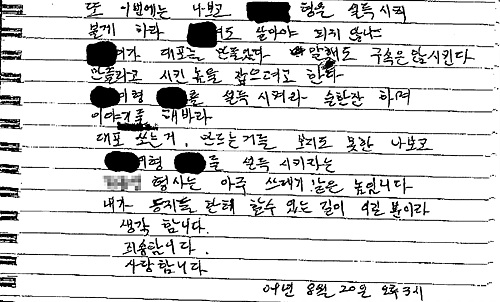 또 이번에는 나보고 형을 설득 시켜
불게 하라 도 살아야 되지 않나
여가 대포는 만들었다 말해도 구속은 않시킨다
만들라고 시킨 놈을 잡으려고 한다
설득 시켜라 술한잔 하며
이야기를 해봐라
대포 쏘는거, 만드는거를 보지도 못한 나보고
형 를 설득 시키라는
형사는 아주 쓰레기 같은 놈입니다
내가 동지들을 위해 할수 있는 길이 이길 뿐이라
생각 합니다.
죄송합니다.
사랑합니다
04년 8월 20일 오후 3시